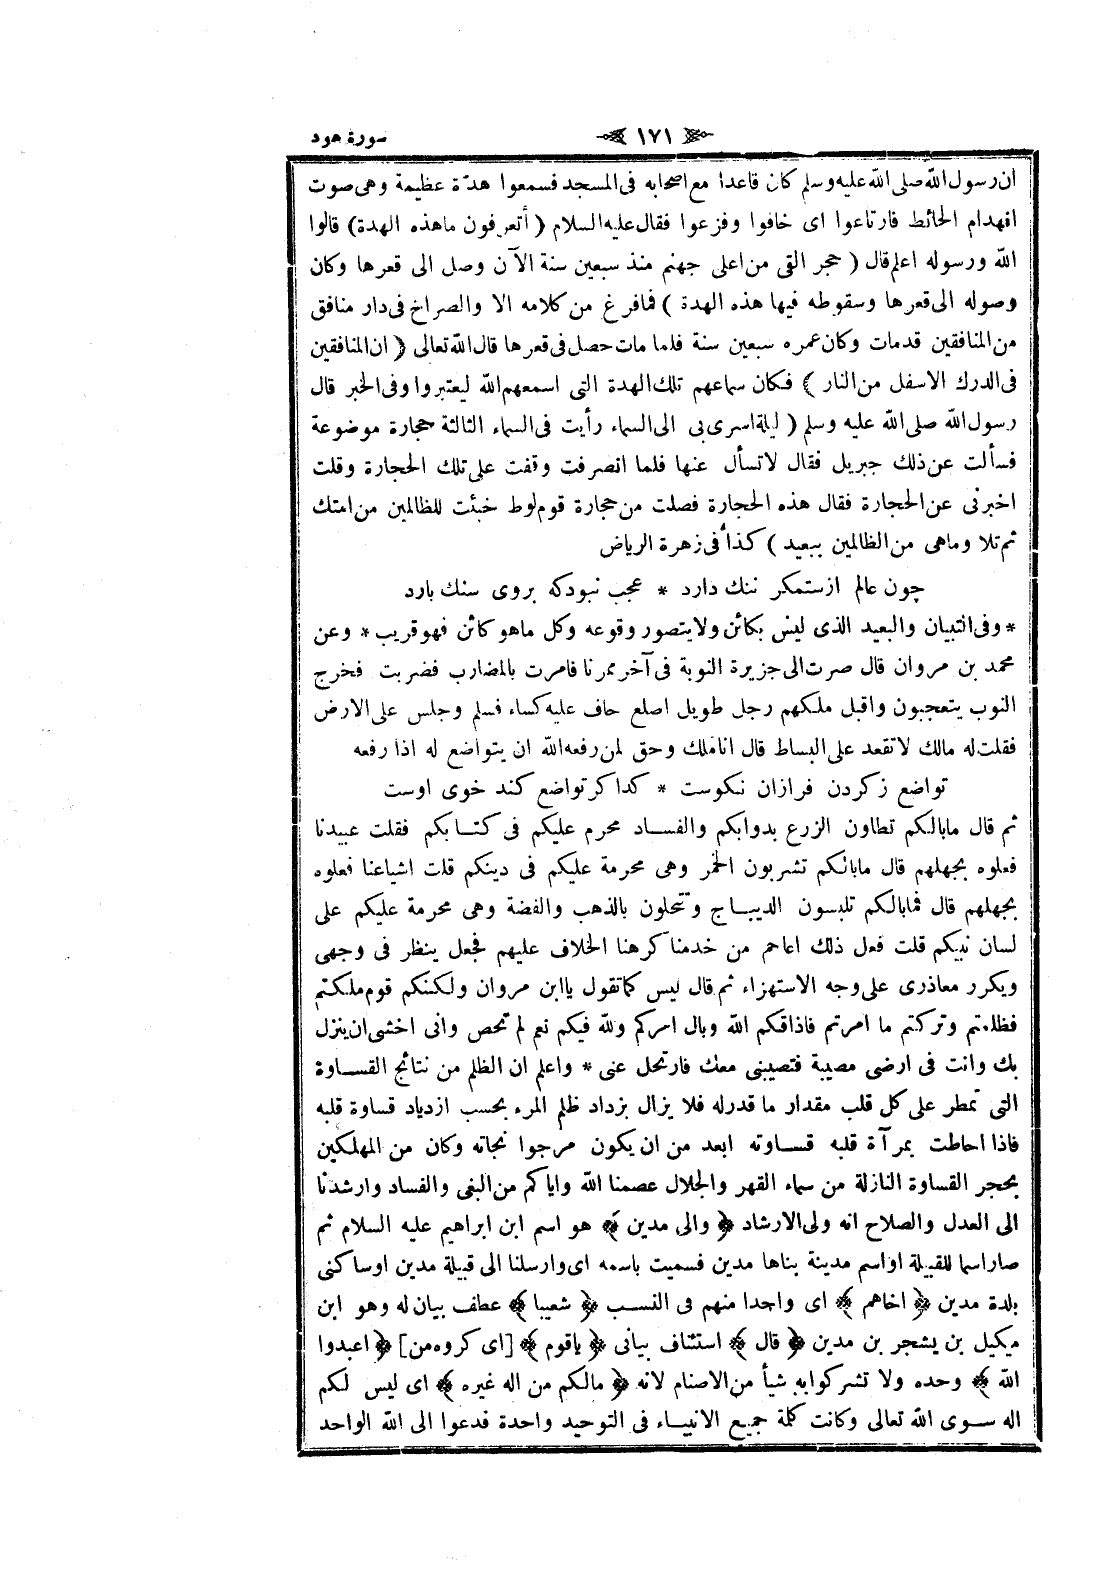 سورة هود
١٧١
ان رسول الله صلى الله عليه وسلم كان قاعدا مع اصحابه فى المسجد فسمعوا هدّة عظيمة وهى صوت
انهدام الحائط فارتاعوا اى خافوا وفزعوا فقال عليه السلام ( أتعرفون ما هذه الهدة ) قالوا
الله ورسوله اعلم قال ( حجر القى من اعلى جهنم منذ سبعين سنة الآن وصل الى قعرها وكان
وصوله الى قعرها وسقوطه فيها هذه الهدة ) فما فرغ من كلامه الا والصراخ فى دار منافق
من المنافقين قدمات وكان عمره سبعين سنة فلما مات حصل فى قعرها قال الله تعالى ( ان المنافقين
فى الدرك الاسفل من النار ) فكان سماعهم تلك الهدة التى اسمعهم الله ليعتبروا وفى الخبر قال
رسول الله صلى الله عليه وسلم ( ليلة اسرى بى الى السماء رأيت فى السماء الثالثة حجارة موضوعة
فسألت عن ذلك جبريل فقال لا تسأل عنها فلما انصرفت وقفت على تلك الحجارة وقلت
اخبرنى عن الحجارة فقال هذه الحجارة فصلت من حجارة قوم لوط خبئت للظالمين من امتك
ثم تلا وماهى من الظالمين ببعيد ) كذا فى زهرة الرياض
چون عالم ازستمكر ننك دارد * عجب نبودكه بروى سنك بارد
* وفى التبيان والبعيد الذى ليس بكائن ولا يتصور وقوعه وكل ماهو كائن فهو قريب * وعن
محمد بن مروان قال صرت الى جزيرة النوبة فى آخر ممرنا فامرت بالمضارب فضربت فخرج
النوب يتعجبون واقبل ملكهم رجل طويل اصلع حاف عليه كساء فسلم وجلس على الارض
فقلت له مالك لا تقعد على البساط قال انا ملك وحق لمن رفعه الله ان يتواضع له اذا رفعه
تواضع زكردن فرازان نكوست * كدا كر تواضع كند خوى اوست
ثم قال مابالكم تطاون الزرع بدوابكم والفساد محرم عليكم فى كتابكم فقلت عبيدنا
فعلوه بجهلهم قال مابالكم تشربون الخمر وهى محرمة عليكم فى دينكم قلت اشياعنا فعلوه
بجهلهم قال فمابالكم تلبسون الديباج وتتحلون بالذهب والفضة وهى محرمة عليكم على
لسان نبيكم قلت فعل ذلك اعاجم من خدمنا كرهنا الخلاف عليهم فجعل ينظر فى وجهى
ويكرر معاذرى على وجه الاستهزاء ثم قال ليس كما تقول يا ابن مروان ولكنكم قوم ملكتم
فظلمتم وتركتم ما امرتم فاذاقكم الله وبال امركم ولله فيكم نعم لم تحص وانى اخشى ان ينزل
بك وانت فى ارضى مصيبة فتصيبنى معك فارتحل عنى * واعلم ان الظلم من نتائج القساوة
التى تمطر على كل قلب مقدار ما قدرله فلا يزال يزداد ظلم المرء بحسب ازدياد قساوة قلبه
فاذا احاطت بمرآة قلبه قساوته ابعد من ان يكون مرجوا نجاته وكان من المهلكين
بحجر القساوة النازلة من سماء القهر والجلال عصمنا الله واياكم من البغى والفساد وارشدنا
الى العدل والصلاح انه ولى الارشاد ﴿ والى مدين ﴾ هو اسم ابن ابراهيم عليه السلام ثم
صار اسما للقبيلة او اسم مدينة بناها مدين فسميت باسمه اى وارسلنا الى قبيلة مدين او ساكنى
بلدة مدين ﴿ اخاهم ﴾ اى واحدا منهم فى النسب ﴿ شعيبا ﴾ عطف بيان له وهو ابن
ميكيل بن يشجر بن مدين ﴿ قال ﴾ استئناف بيانى ﴿ ياقوم ﴾ [اى كروه من] ﴿ اعبدوا
الله ﴾ وحده ولا تشركوا به شيأ من الاصنام لانه ﴿ مالكم من اله غيره ﴾ اى ليس لكم
اله سوى الله تعالى وكانت كلمة جميع الانبياء فى التوحيد واحدة فدعوا الى الله الواحد